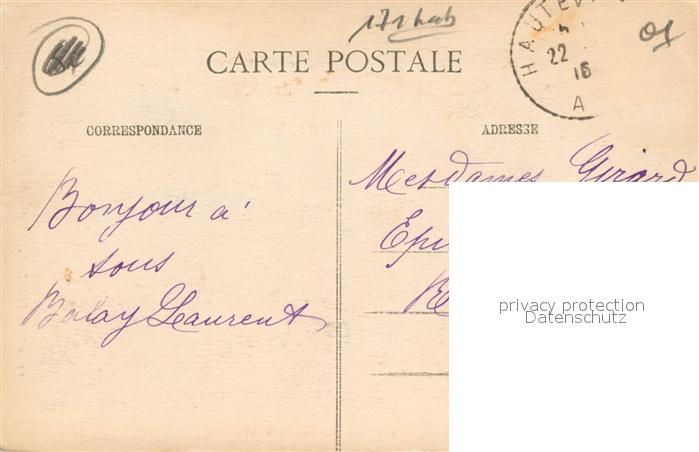 171 hab
CARTE POSTALE
HAUTEV
22
16
A
01
CORRESPONDANCE
ADRESSE
Bonjour à
tous
Balay Laurent
Mesdames Girard
Epi
R
privacy protection
Datenschutz